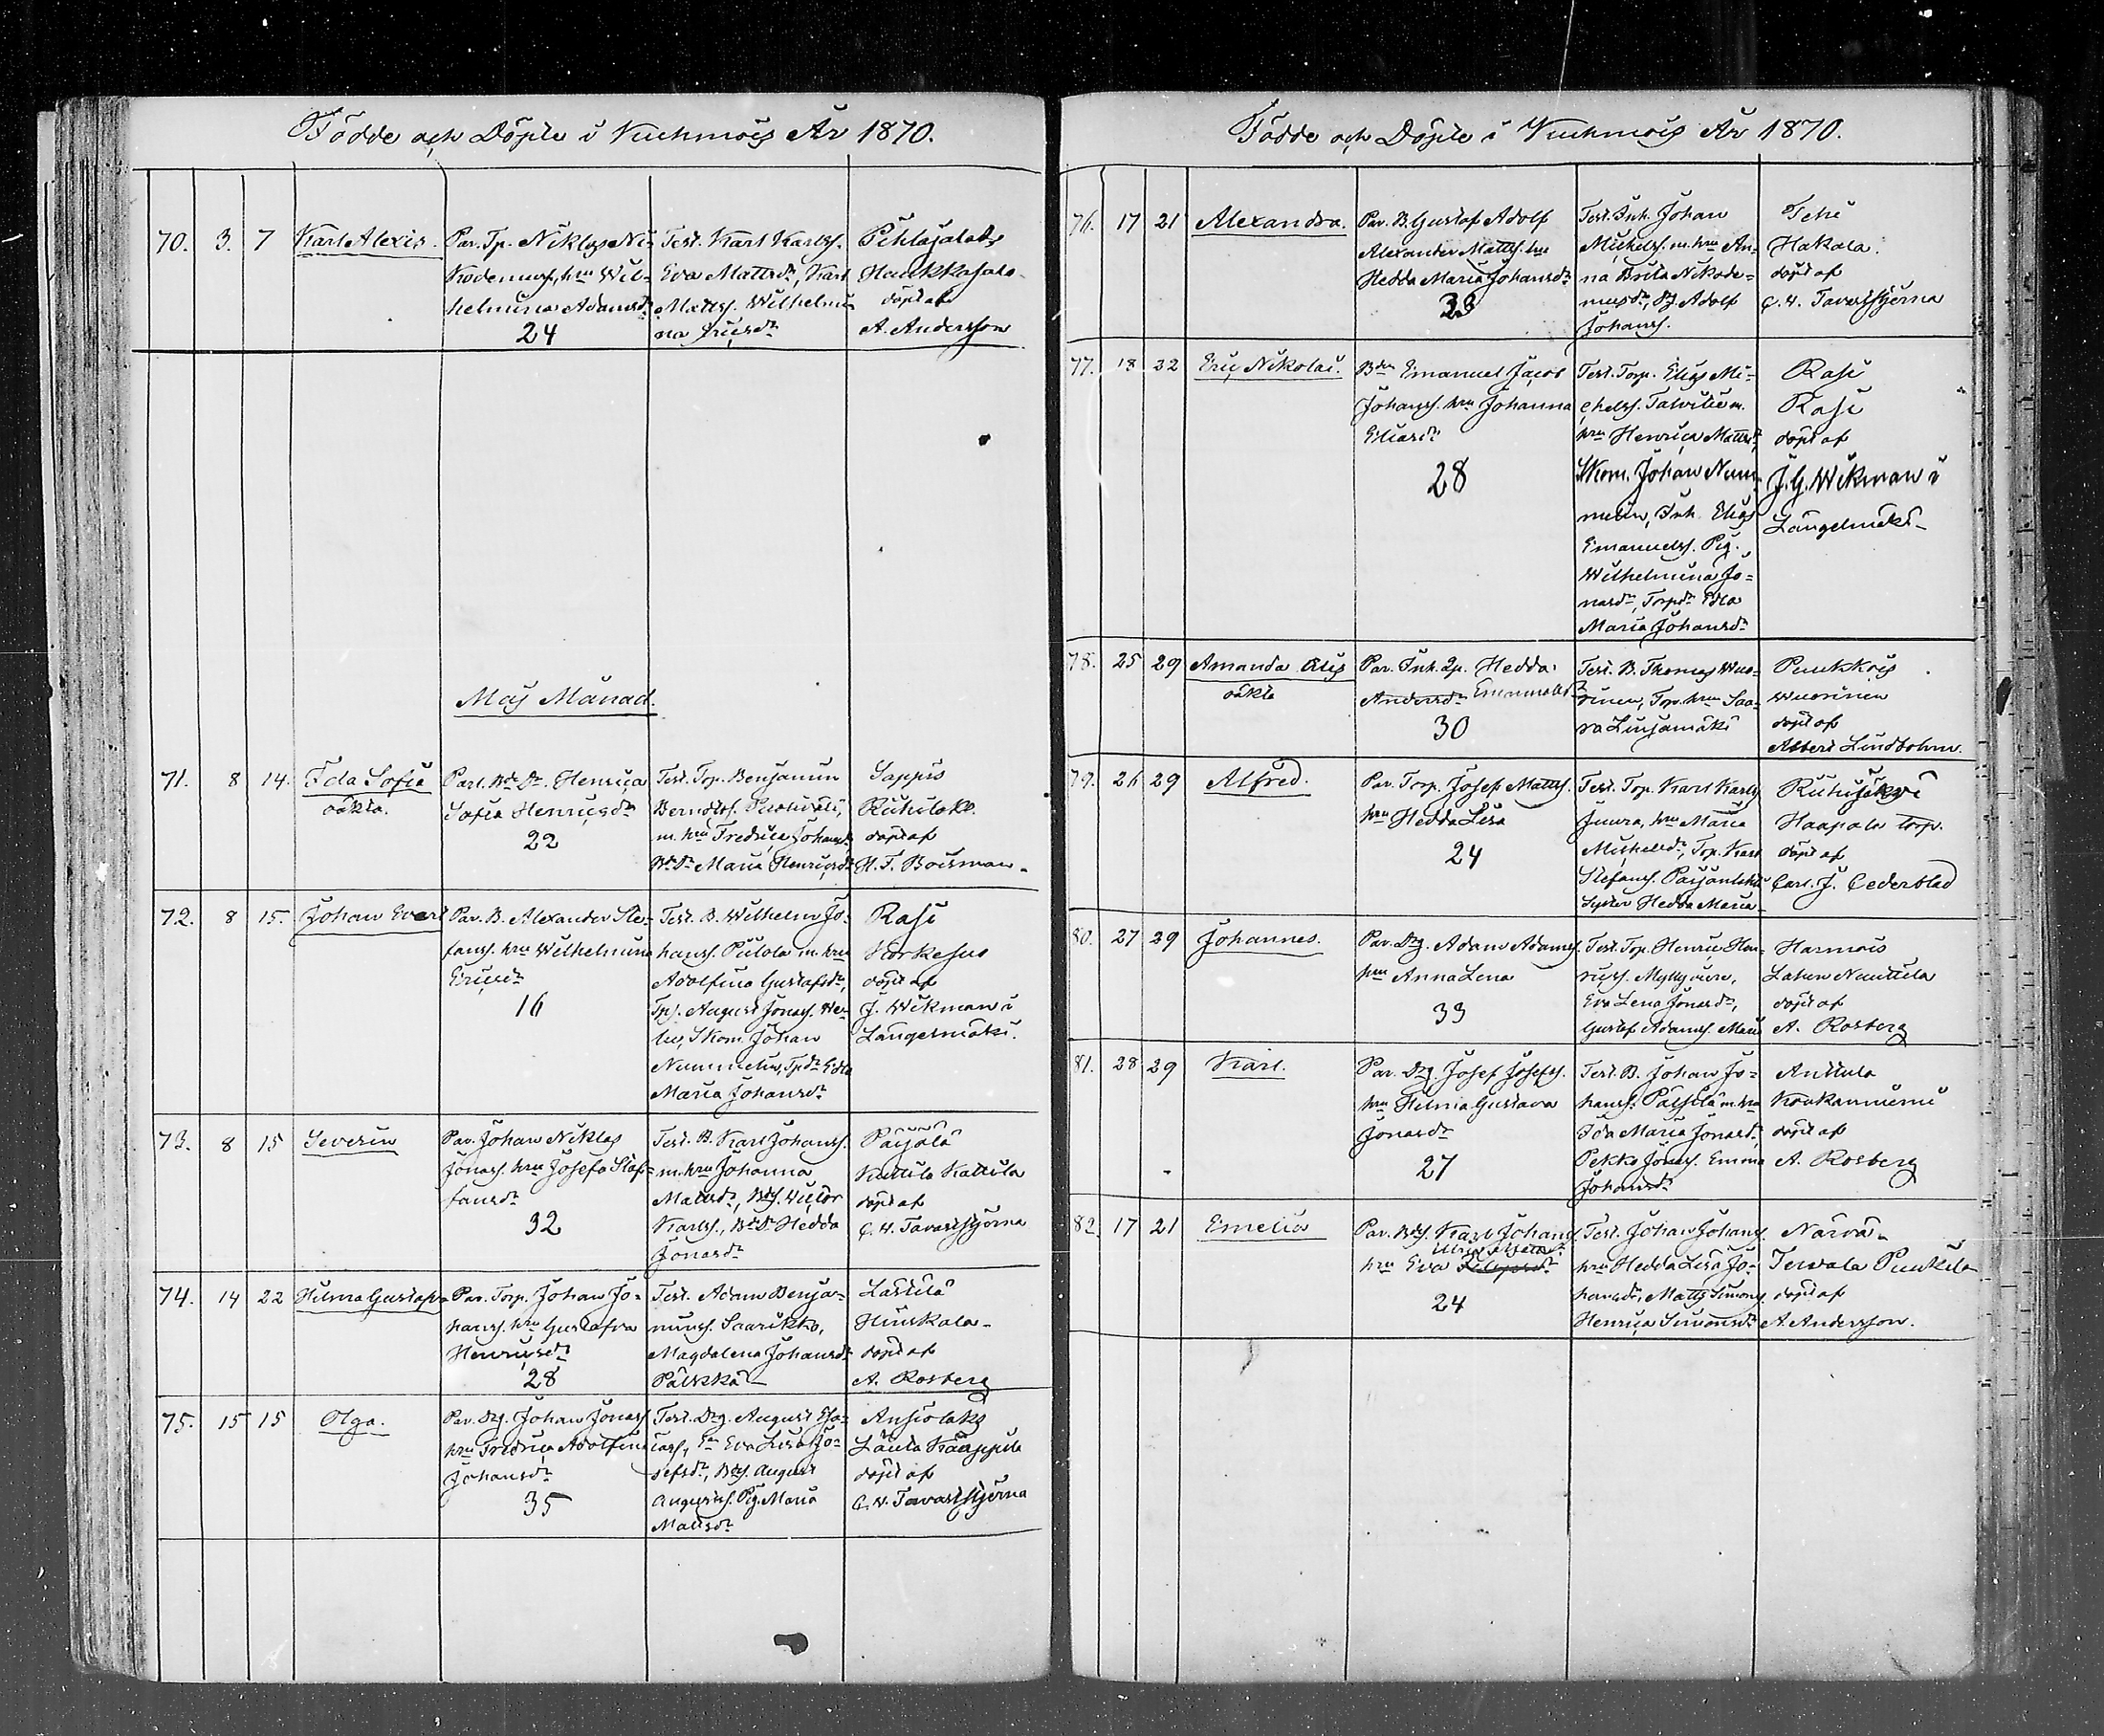 Födde och Döpte i Kuhmois År 1870.
70. 3. 7 Karl Alexis.
Par. Tp. Niklas Ni-
kodemuss., hru Wil-
helmina Adamsdr
24
Test. Karl Karlss.
Eva Mattsdr, Karl
Mattss. Wilhelmi-
na Ericsdr
Pihlajalaks
Haukkasalo
döpt af
A. Andersson
Maj Månad.
71. 8 14. Ida Sofia
oäkta.
Par. Bde Dr. Henrica
Sofia Henricsdr
22
Test. Tp. Benjamin
Berndtss.
m. hru Fredrica Johansdr
Bde Dr Maria Henricsdr
Sappis
Riihilaks
döpt af
H. F. Boisman.
72. 8 15. Johan Evert
Par. B. Alexander Ste-
fanss. hru Wilhelmina
Ericsdr
16
Test. B. Wilhelm Jo-
hanss. Piilola m. hru
Adolfina Gustafsdr,
Tpj. August Jonass.
Skom. Johan
Nummelin, Tpdr Edla
Maria Johansdr
Rasi
Korkesuo
döpt af
J. Wikman i
Längelmäki.
73. 8 15 Severin
Par. Johan Niklas
Jonass. hru Josefa Staf-
fansdr
32
Test. B. Karl Johanss.
m. hru Johanna
Mattsdr, Bdes. Victor
Karlss., Bde Dr Hedda
Jonasdr
Päijälä
Kattila Kattila
döpt af
C. H. Tavaststjerna
74. 14 22 Hilma Gustafva
Par. Torp. Johan Jo-
hanss. hru Gustafva
Henricsdr
28
Test. Adam Benja-
minss. Saarikko,
Magdalena Johansdr
Pälkkä
Lästilä
Hinskala
döpt af
A. Rosberg
75. 15 15 Olga.
Par. Drg. Johan Jonass.
hru Fredrica Adolfina
Johansdr
35
Test. Drg. August Esa-
iass., Eva Lisa Jo-
sefsdr, Bdes. August
Augustss. Pig. Maria
Mattsdr
Ansiolaks
Läula Kääppilä
döpt af
C. H. Tavaststjerna
Födde och Döpte i Kuhmois År 1870.
76. 17 21 Alexandra.
Par. B. Gustaf Adolf
Alexander Mattss. hru
Hedda Maria Johansdr
33
Test. Inh. Johan
Michelss. m. hru An-
na Brita Nikode-
musdr, Dg Adolf
Johanss.
Tehi
Hakala.
döpt af
C. H. Tavaststjerna
77. 18 22 Eric Nikolai.
Bden Emanuel Jacob
Johanss. hru Johanna
Eliasdr
28
Test. Torp. Elias Mi-
chelss. Talvitie m.
hru Henrica Mattsdr,
Skom. Johan Num-
melin, Inh. Elias
Emanuelss. Pig.
Wilhelmina Jo-
nasdr, Torpdr Edla
Maria Johansdr
Rasi
Rasi
döpt af
J. G. Wikman i
Längelmäki
78. 25 29 Amanda Alis
oäkta
Par. Inh. Qp. Hedda
Andersdr Emanuelsdr
30
Test. B. Thomas Wuo-
rinen, Torp. hru Saa-
ra Linjamäki
Puukkois
Wuorinen
döpt af
Albert Lindbohm.
79. 26 29 Alfred.
Par. Torp. Josef Mattss.
hru Hedda Lisa
24
Test. Tp. Karl Karlss.
Juura, hru Maria
Michelsdr, Tp. Karl
Stefanss.
Syster Hedda Maria
Riihijärvi
Haapala torp.
döpt af
Carl. J. Cederblad
80. 27 29 Johannes.
Par. Drg. Adam Adamss.
hru Anna Lena
33
Test. Tp. Henric Hen-
ricss.
Eva Lena Jonasdr,
Gustaf Adamss. Maria
Harmois
Lahen Nauttila
döpt af
A. Rosberg
81. 28 29 Karl.
Par. Drg. Josef Josefss.
hru Helmia Gustava
Jonasdr
27
Test. B. Johan Jo-
hanss. m. hru
Ida Maria Jonasdr
Pekka Jonass. Emma
Johansdr
Anttula
Koukanniemi
döpt af
A. Rosberg
82. 17 21 Emelia
Par. Bdes. Karl Johanss.
hru Eva
24
Test. Johan Johanss.
hru Hedda Lisa Jo-
hansdr, Matts Simonss.
Henrica Simonsdr
Närvä
Tervala Puukila
döpt af
A. Andersson.